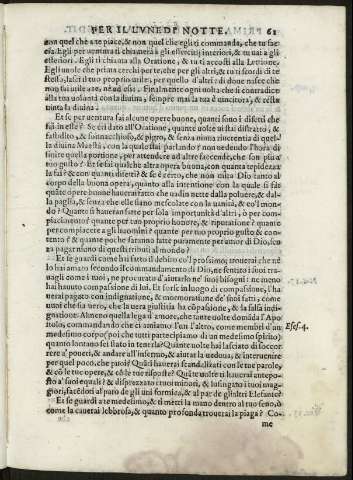 PER IL LVNEDI NOTTE. 61
non quel che à te piace, & non quel che egli ti commanda, che tu faces
si. Egli per uentura ti chiamerà à gli essercitij interiori, & tu uai à gli
esteriori. Egli ti chiama alla Oratione, & tu ti accosti alla Lettione.
Egli uuole che prima cerchi per te, che per gli altri, & tu ti scordi di te
stesso, lasci il tuo proprio utile, per quello d'altri: di doue nasce che
non fai utile à te, nè ad essi. Finalmente ogni uolta che si contradice
alla tua uolontà con la diuina, sempre mai la tua è uincitora, & resta
uinta la diuina.
Et se per uentura fai alcune opere buone, quanti sono i difetti che
fai in elle? Se ti dai all'Oratione, quante uolte ui stai distratto, &
fastidito, & sonnacchioso, & pigro, & senza niuna riuerentia di quella
diuina Maestà, con la qual stai parlando? non uedendo l'hora di
finire quella portione, per attendere ad altre faccende, che son più a
tuo gusto? Et se fai qualche altra opera buona, con quanta tepidezza
la fai? & con quanti difetti? & se è certo, che non mira Dio tanto al
corpo della buona opera, quanto alla intentione con la quale si fa:
quante opere buone hauerai fatto che uadin nette dalla poluere, & dal-
la paglia, & senza che elle siano mescolate con la uanità, & col mon-
do? Quante ti hauerai fatte per sola importunità d'altri, ò per com-
piacimento? quante per tuo proprio honore, & riputatione? quante
per compiacere a gli huomini? quante per tuo proprio gusto & con-
tento? & quante poche saranno fatte puramente per amor di Dio, sen-
za pagar niuno di questi tributi al mondo?
Et se guardi come hai fatto il debito col prossimo; trouerai che nè
lo hai amato secondo il commandamento di Dio, ne sentito i suoi tra-
uagli come i tuoi, ne procurato d'aiutarlo ne' suoi bisogni: ne meno
hai hauuto compassione di lui. Et forse in luogo di compassione, l'ha-
uerai pagato con indignatione, & mormoratione de' suoi fatti, come
uuol che sia vero, che la vera giustitia ha compassione, & la falsa indi-
gnatione. Almeno quella lega d'amore, che tante uolte domanda l'Apo-
stolo, commandando che ci amiamo l'un l'altro, come membri d'un Efes. 4.
medesimo corpo (poi che tutti participiamo di un medesimo spirito)
quanto lontano sei stato in tenerla? Quante uolte hai lasciato di soccor-
rere a' poueri, & andare all'infermo, & aiutar la uedoua, & interuenire
per quel poco, che puoi? Quanti hauerai scandalizati con le tue parole,
& cõ le tue opere, & cõ le tue risposte? Quãte uolte ti hauerai antepo-
sto a' tuoi eguali? & disprezzato i tuoi minori, & lusingato i tuoi mag-
giori, facẽdoti al pato de gli uni formica, & al par de gli altri Elefante?
Et se guardi a te medesimo, & ti metti la mano dentro al tuo seno, ò
come la cauerai lebbrosa, & quanto profonda trouerai la piaga? Co-
me